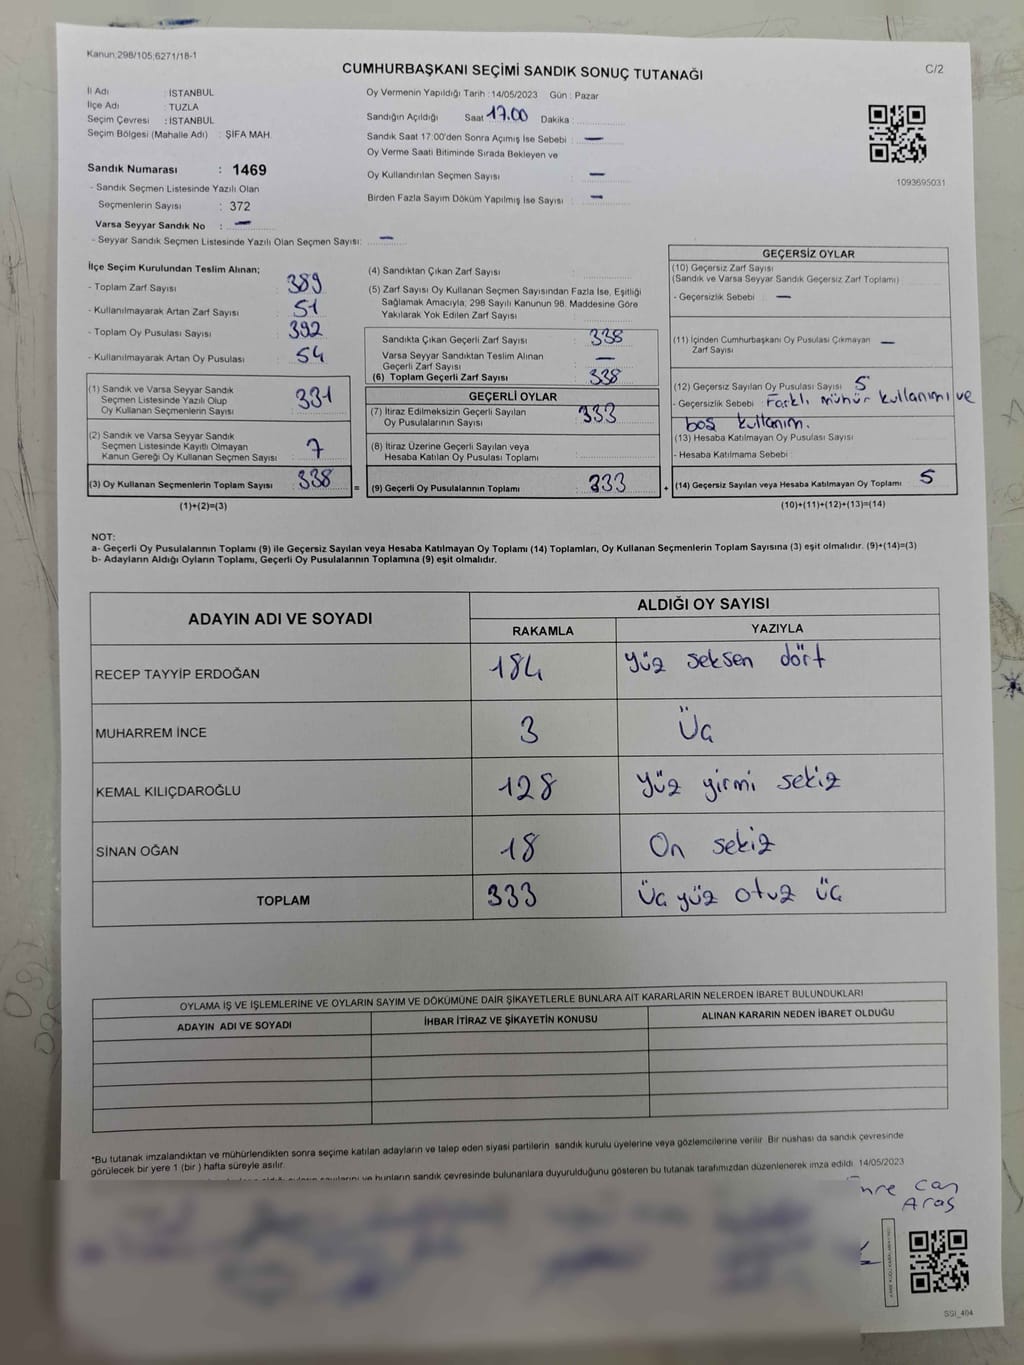 Kanun;298/105;6271/18-1
C/2
CUMHURBAŞKANI SEÇİMİ SANDIK SONUÇ TUTANAĞI
İl Adı : İSTANBUL
İlçe Adı : TUZLA
Seçim Çevresi : İSTANBUL
Seçim Bölgesi (Mahalle Adı) : ŞİFA MAH.
Sandık Numarası : 1469
- Sandık Seçmen Listesinde Yazılı Olan
Seçmenlerin Sayısı : 372
Varsa Seyyar Sandık No : —
- Seyyar Sandık Seçmen Listesinde Yazılı Olan Seçmen Sayısı: —
Oy Vermenin Yapıldığı Tarih : 14/05/2023 Gün : Pazar
Sandığın Açıldığı Saat 17.00 Dakika :
Sandık Saat 17:00'den Sonra Açımış İse Sebebi : —
Oy Verme Saati Bitiminde Sırada Bekleyen ve
Oy Kullandırılan Seçmen Sayısı : —
Birden Fazla Sayım Döküm Yapılmış İse Sayısı : —
1093695031
İlçe Seçim Kurulundan Teslim Alınan;
- Toplam Zarf Sayısı : 389
- Kullanılmayarak Artan Zarf Sayısı : 51
- Toplam Oy Pusulası Sayısı : 392
- Kullanılmayarak Artan Oy Pusulası : 54
(1) Sandık ve Varsa Seyyar Sandık
Seçmen Listesinde Yazılı Olup
Oy Kullanan Seçmenlerin Sayısı : 331
(2) Sandık ve Varsa Seyyar Sandık
Seçmen Listesinde Kayıtlı Olmayan
Kanun Gereği Oy Kullanan Seçmen Sayısı : 7
(3) Oy Kullanan Seçmenlerin Toplam Sayısı : 338
(1)+(2)=(3)
(4) Sandıktan Çıkan Zarf Sayısı :
(5) Zarf Sayısı Oy Kullanan Seçmen Sayısından Fazla İse, Eşitliği
Sağlamak Amacıyla, 298 Sayılı Kanunun 98. Maddesine Göre
Yakılarak Yok Edilen Zarf Sayısı :
Sandıkta Çıkan Geçerli Zarf Sayısı : 338
Varsa Seyyar Sandıktan Teslim Alınan
Geçerli Zarf Sayısı : —
(6) Toplam Geçerli Zarf Sayısı : 338
GEÇERLİ OYLAR
(7) İtiraz Edilmeksizin Geçerli Sayılan
Oy Pusulalarının Sayısı : 333
(8) İtiraz Üzerine Geçerli Sayılan veya
Hesaba Katılan Oy Pusulası Toplamı :
= (9) Geçerli Oy Pusulalarının Toplamı : 333
GEÇERSİZ OYLAR
(10) Geçersiz Zarf Sayısı
(Sandık ve Varsa Seyyar Sandık Geçersiz Zarf Toplamı) :
- Geçersizlik Sebebi : —
(11) İçinden Cumhurbaşkanı Oy Pusulası Çıkmayan : —
Zarf Sayısı
(12) Geçersiz Sayılan Oy Pusulası Sayısı : 5
- Geçersizlik Sebebi : Farklı mühür kullanımı ve
boş kullanım.
(13) Hesaba Katılmayan Oy Pusulası Sayısı :
- Hesaba Katılmama Sebebi :
+ (14) Geçersiz Sayılan veya Hesaba Katılmayan Oy Toplamı : 5
(10)+(11)+(12)+(13)=(14)
NOT:
a- Geçerli Oy Pusulalarının Toplamı (9) ile Geçersiz Sayılan veya Hesaba Katılmayan Oy Toplamı (14) Toplamları, Oy Kullanan Seçmenlerin Toplam Sayısına (3) eşit olmalıdır. (9)+(14)=(3)
b- Adayların Aldığı Oyların Toplamı, Geçerli Oy Pusulalarının Toplamına (9) eşit olmalıdır.
ADAYIN ADI VE SOYADI
ALDIĞI OY SAYISI
RAKAMLA YAZIYLA
RECEP TAYYİP ERDOĞAN 184 yüz seksen dört
MUHARREM İNCE 3 Üç
KEMAL KILIÇDAROĞLU 128 yüz yirmi sekiz
SİNAN OĞAN 18 On sekiz
TOPLAM 333 Üç yüz otuz üç
OYLAMA İŞ VE İŞLEMLERİNE VE OYLARIN SAYIM VE DÖKÜMÜNE DAİR ŞİKAYETLERLE BUNLARA AİT KARARLARIN NELERDEN İBARET BULUNDUKLARI
ADAYIN ADI VE SOYADI İHBAR İTİRAZ VE ŞİKAYETİN KONUSU ALINAN KARARIN NEDEN İBARET OLDUĞU
*Bu tutanak imzalandıktan ve mühürlendikten sonra seçime katılan adayların ve talep eden siyasi partilerin sandık kurulu üyelerine veya gözlemcilerine verilir. Bir nüshası da sandık çevresinde
görülecek bir yere 1 (bir ) hafta süreyle asılır.
ve bunların sandık çevresinde bulunanlara duyurulduğunu gösteren bu tutanak tarafımızdan düzenlenerek imza edildi. 14/05/2023
Can
Aras
SSİ_404